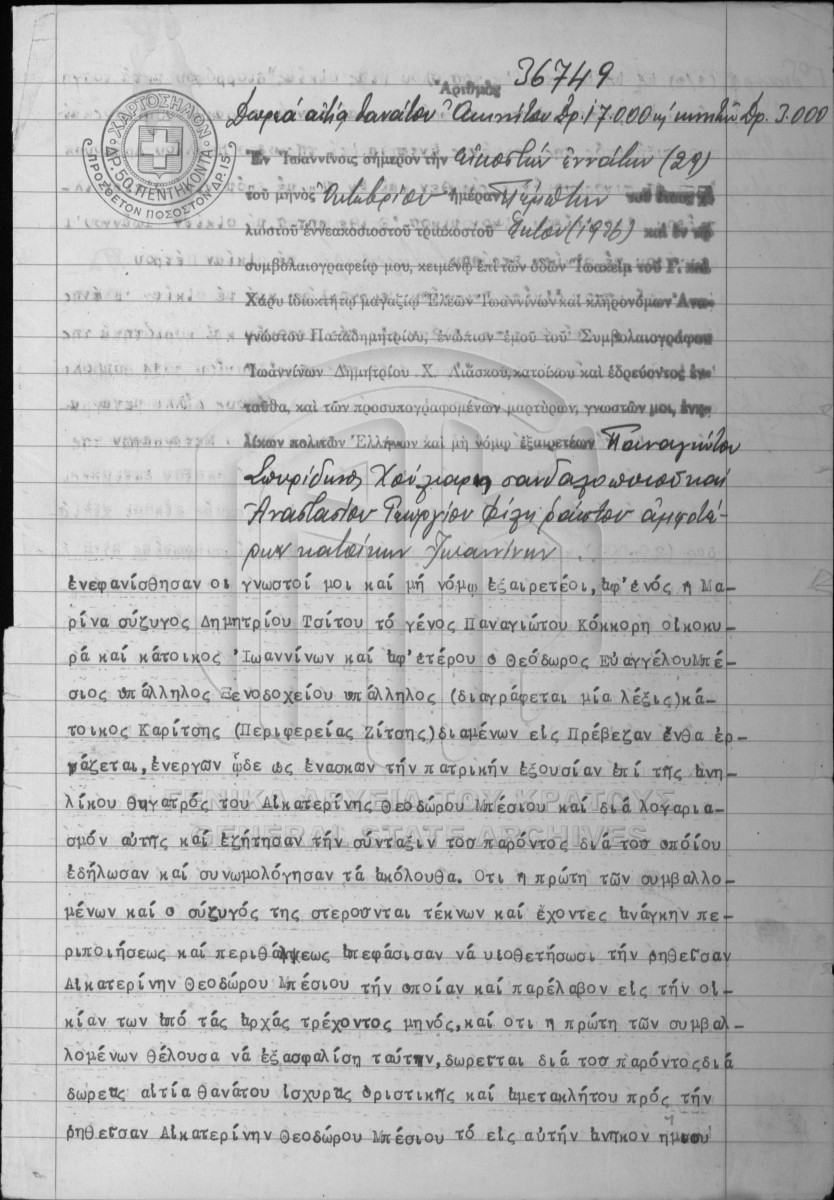 Ἀριθμὸς 36749
Δωρεά αἰτίᾳ θανάτου Ἀκινήτου Δρ. 17.000 κ κινητῶν Δρ. 3.000
ΧΑΡΤΟΣΗΜΟΝ
ΔΡ. 50 ΠΕΝΤΗΚΟΝΤΑ
ΠΡΟΣΘΕΤΟΝ ΠΟΣΟΣΤΟΝ ΔΡ. 15
Ἐν Ἰωαννίνοις σήμερον τὴν εἰκοστὴν ἐννάτην (29)
τοῦ μηνὸς Ὀκτωβρίου ἡμέραν Πέμπτην τοῦ ἔτους χι-
λιοστοῦ ἐννεακοσιοστοῦ τριακοστοῦ ἕκτου (1936) καὶ ἐν τῷ
συμβολαιογραφείῳ μου, κειμένῳ ἐπὶ τῶν ὁδῶν Ἰωακεὶμ τοῦ Γ. καὶ
Χάρυ ἰδιοκτήτῳ μαγαζίῳ Ἐλεῶν Ἰωαννίνων καὶ κληρονόμων Ἀνα-
γνώστου Παπαδημητρίου, ἐνώπιον ἐμοῦ τοῦ Συμβολαιογράφου
Ἰωαννίνων Δημητρίου Χ. Λιάσκου, κατοίκου καὶ ἑδρεύοντος ἐν-
ταῦθα, καὶ τῶν προσυπογραφομένων μαρτύρων, γνωστῶν μοι, ἐνη-
λίκων πολιτῶν Ἑλλήνων καὶ μὴ νόμῳ ἐξαιρετέων Παναγιώτου
Σπυρίδωνος Χούλιαρη σανδαλοποιοῦ καὶ
Ἀναστασίου Γεωργίου Φίλη ράπτου ἀμφοτέ-
ρων κατοίκων Ἰωαννίνων
ἐνεφανίσθησαν οι γνωστοί μοι καί μή νόμῳ ἐξαιρετέοι, ἀφ' ἑνός η Μα-
ρίνα σύζυγος Δημητρίου Τσίτου τό γένος Παναγιώτου Κόκκορη οἰκοκυ-
ρά καί κάτοικος Ἰωαννίνων καί ἀφ' ἑτέρου ο Θεόδωρος ΕὐαγγέλουΜπέ-
σιος υπάλληλος Ξενοδοχείου υπάλληλος (διαγράφεται μία λέξις)κά-
τοικος Καρίτσης (Περιφερείας Ζίτσης)διαμένων εἰς Πρέβεζαν ἔνθα ἐρ-
γάζεται, ἐνεργῶν ὧδε ως ἐνασκων τήν πατρικήν ἐξουσίαν ἐπί της ἀνη-
λίκου θυγατρός του Αἰκατερίνης Θεοδώρου Μπέσιου καί διά λογαρια-
σμόν αὐτης καί ἐζήτησαν τήν σύνταξιν τοῦ παρόντος διά τοῦ οποίου
ἐδήλωσαν καί συνωμολόγησαν τά ἀκόλουθα. Οτι η πρώτη τῶν συμβαλλο-
μένων καί ο σύζυγός της στεροῦνται τέκνων καί ἔχοντες ἀνάγκην πε-
ριποιήσεως καί περιθάλψεως ἀπεφάσισαν νά υιοθετήσωσι τήν ρηθεῖσαν
Αἰκατερίνην Θεοδώρου Μπέσιου τήν οποίαν καί παρέλαβον εἰς τήν οἰ-
κίαν των ἀπό τάς ἀρχάς τρέχοντος μηνός, καί οτι η πρώτη τῶν συμβαλ-
λομένων θέλουσα νά ἐξασφαλίση ταύτην, δωρεῖται διά τοῦ παρόντος διά
δωρεᾶς αἰτία θανάτου ἰσχυρᾶς οριστικῆς καί ἀμετακλήτου πρός τήν
ρηθεῖσαν Αἰκατερίνην Θεοδώρου Μπέσιου τό εἰς αὐτήν ἀνηκον ήμισυ
ΓΕΝΙΚΑ ΑΡΧΕΙΑ ΤΟΥ ΚΡΑΤΟΥΣ
GENERAL STATE ARCHIVES